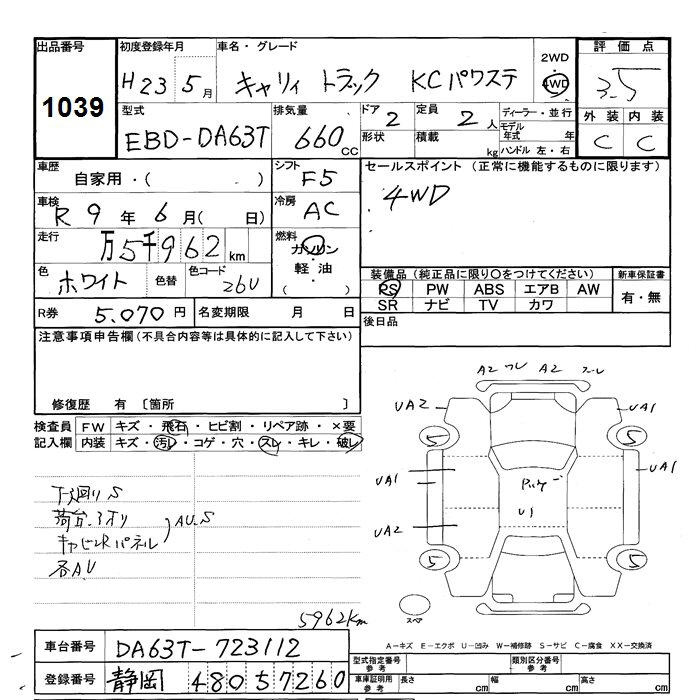 出品番号 初度登録年月 車名・グレード 2WD 評価点
1039 H23 5月 キャリィ トラック KCパワステ 4WD 3.5
型式 排気量 ドア 2 定員 2人 ディーラー・並行 外装 内装
EBD-DA63T 660cc 形状 積載 kg モデル年式 年 C C
ハンドル 左・右
車歴 自家用・( ) シフト F5 セールスポイント (正常に機能するものに限ります)
車検 R9年6月( 日) 冷房 AC 4WD
走行 万5千962km 燃料 ガソリン
軽油
( )
色 ホワイト 色替 色コード 26U 装備品 (純正品に限り○をつけてください) 新車保証書
PS PW ABS エアB AW 有・無
SR ナビ TV カワ
R券 5.070円 名変期限 月 日 後日品
注意事項申告欄(不具合内容等は具体的に記入して下さい)
修復歴 有 〔箇所 〕
検査員 FW キズ・飛石・ヒビ割・リペア跡・×要
記入欄 内装 キズ・汚レ・コゲ・穴・スレ・キレ・破レ
下廻りS
荷台・アオリ
キャビンRパネル
AU.S
各AU
5962km
A2 A2
UA2 UA1
5 5
UA1 UA1
U1
UA2
5 5
スペア
A-キズ E-エクボ U-凹み W-補修跡 S-サビ C-腐食 XX-交換済
車台番号 DA63T-723112 型式指定番号 参考 類別区分番号 参考
登録番号 静岡 480 57260 車庫証明用 参考 長さ cm 幅 cm 高さ cm